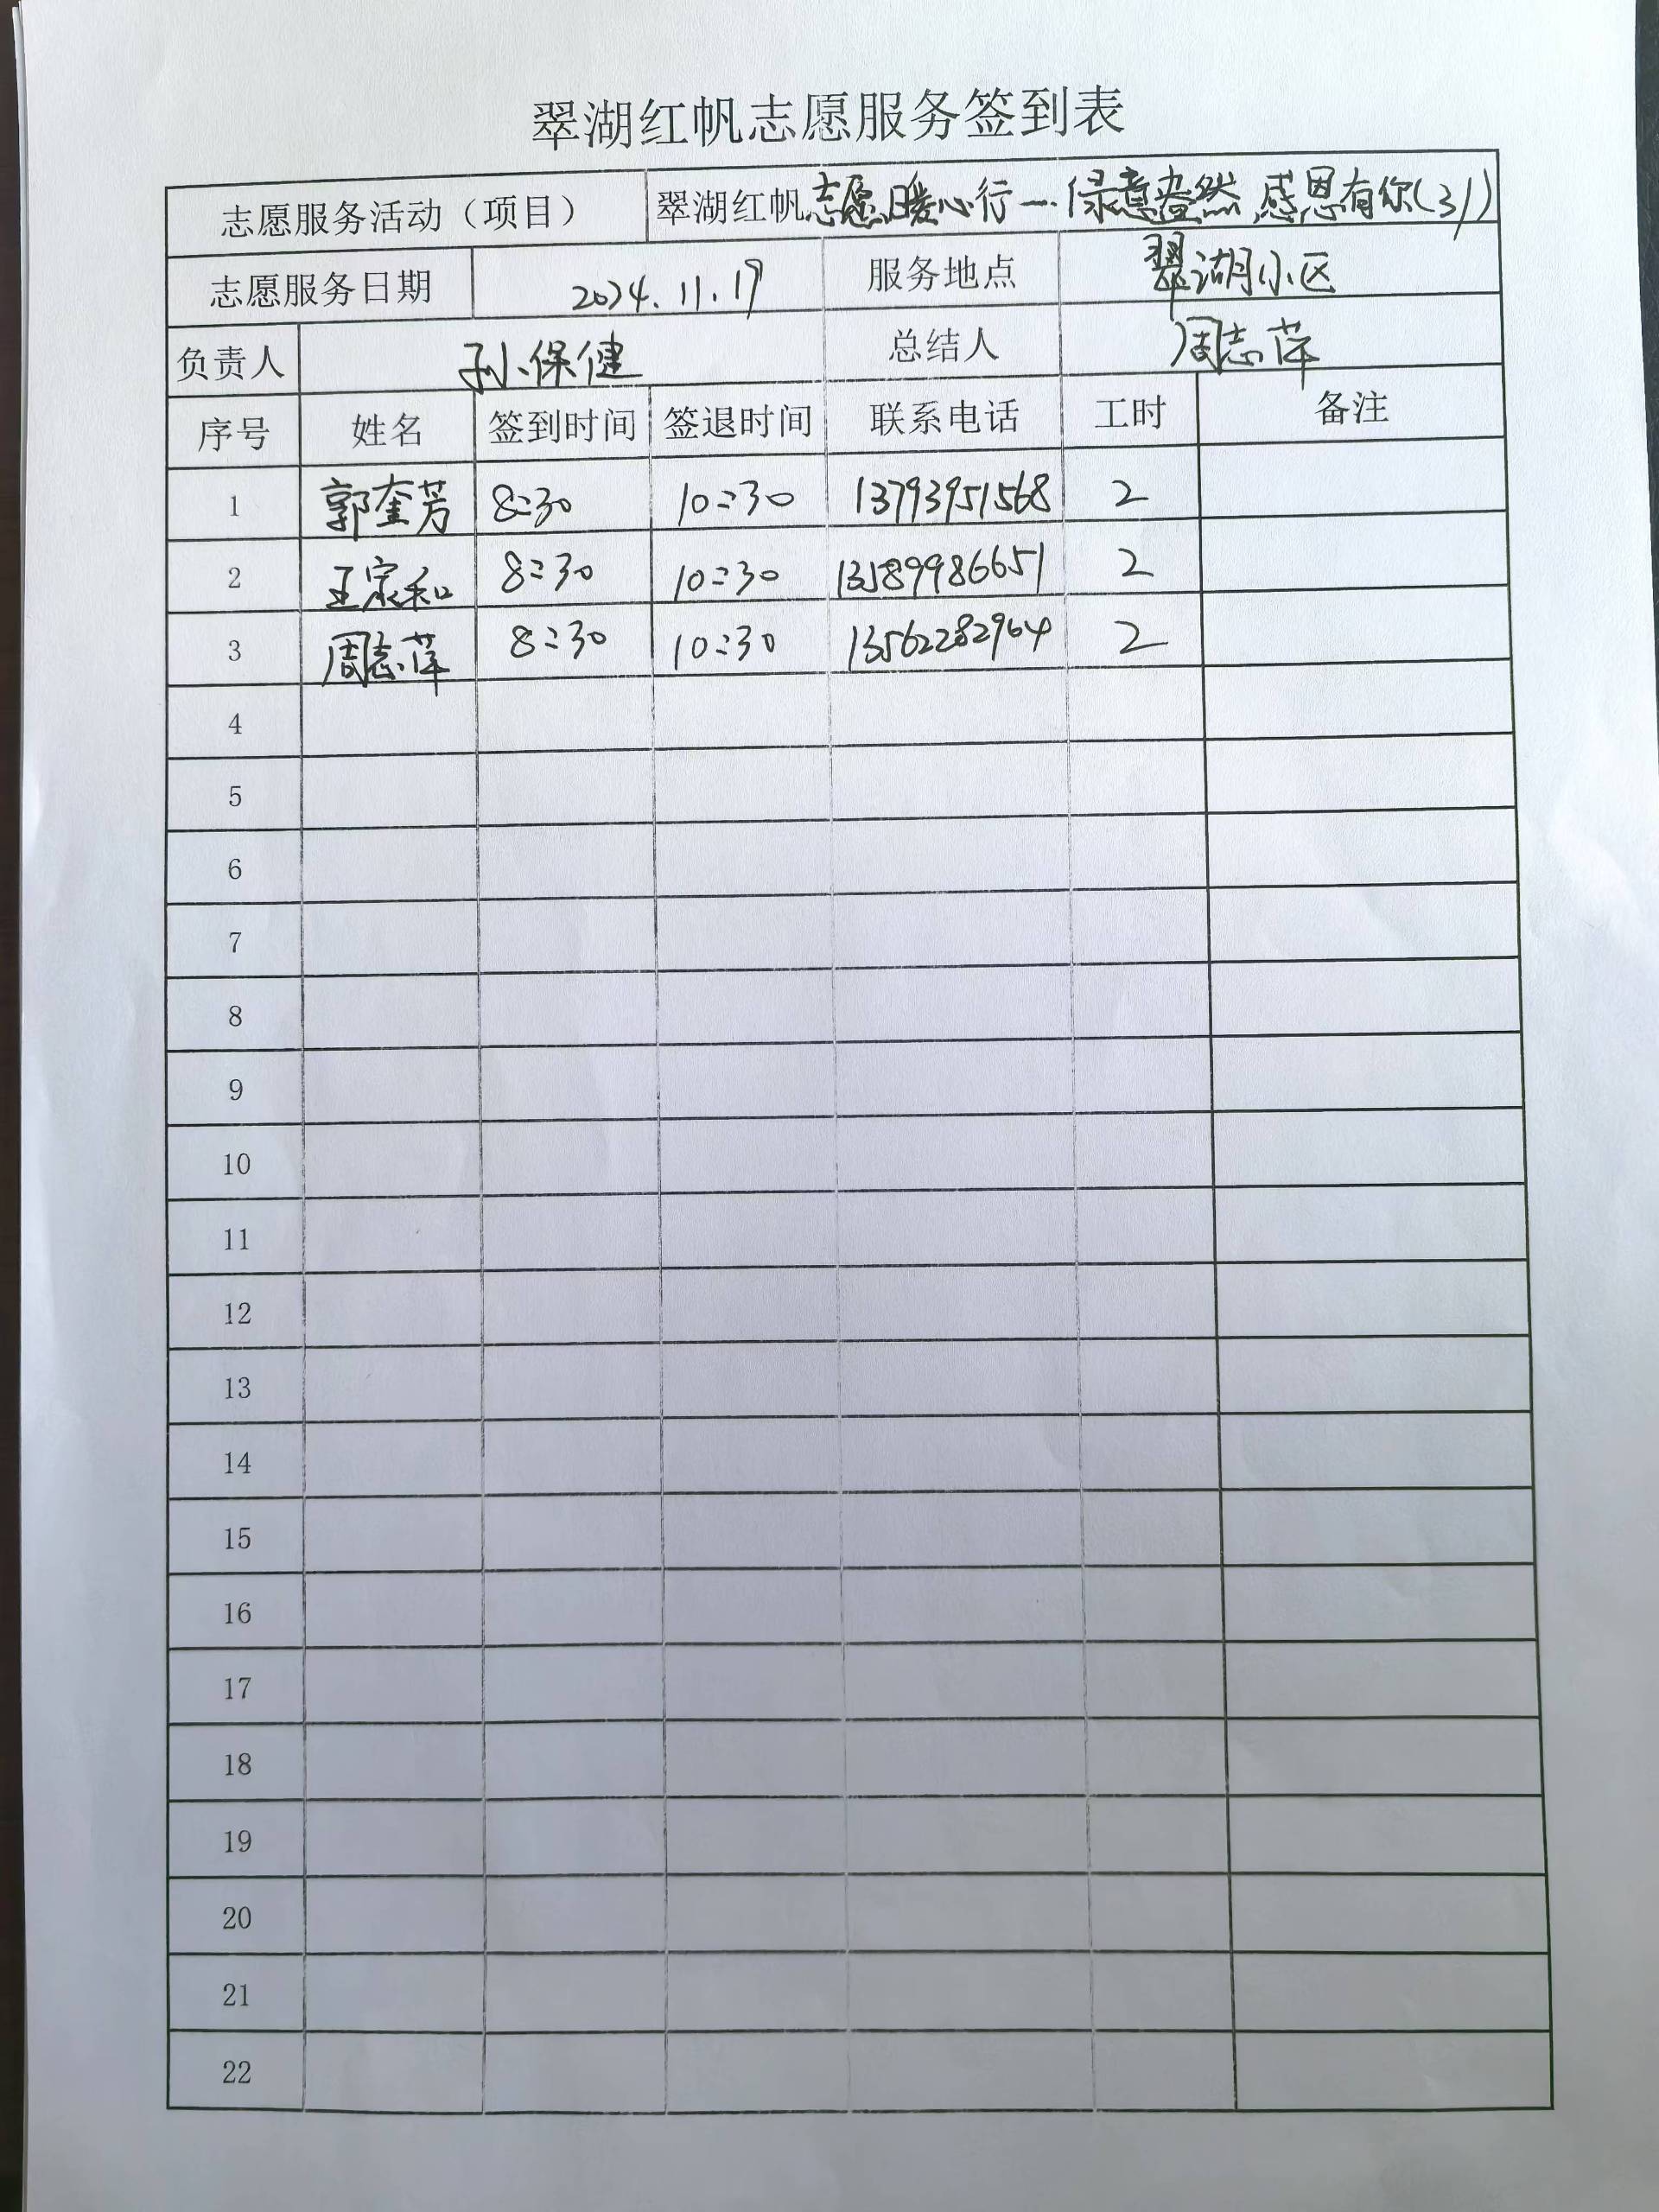 翠湖红帆志愿服务签到表
志愿服务活动（项目） 翠湖红帆志愿暖心行一..绿意盎然 感恩有你(31)
志愿服务日期 2024.11.19 服务地点 翠湖小区
负责人 孙保健 总结人 周志萍
序号 姓名 签到时间 签退时间 联系电话 工时 备注
1 郭奎芳 8:30 10:30 13793951568 2
2 王家和 8:30 10:30 13589986651 2
3 周志萍 8:30 10:30 13562282964 2
4
5
6
7
8
9
10
11
12
13
14
15
16
17
18
19
20
21
22